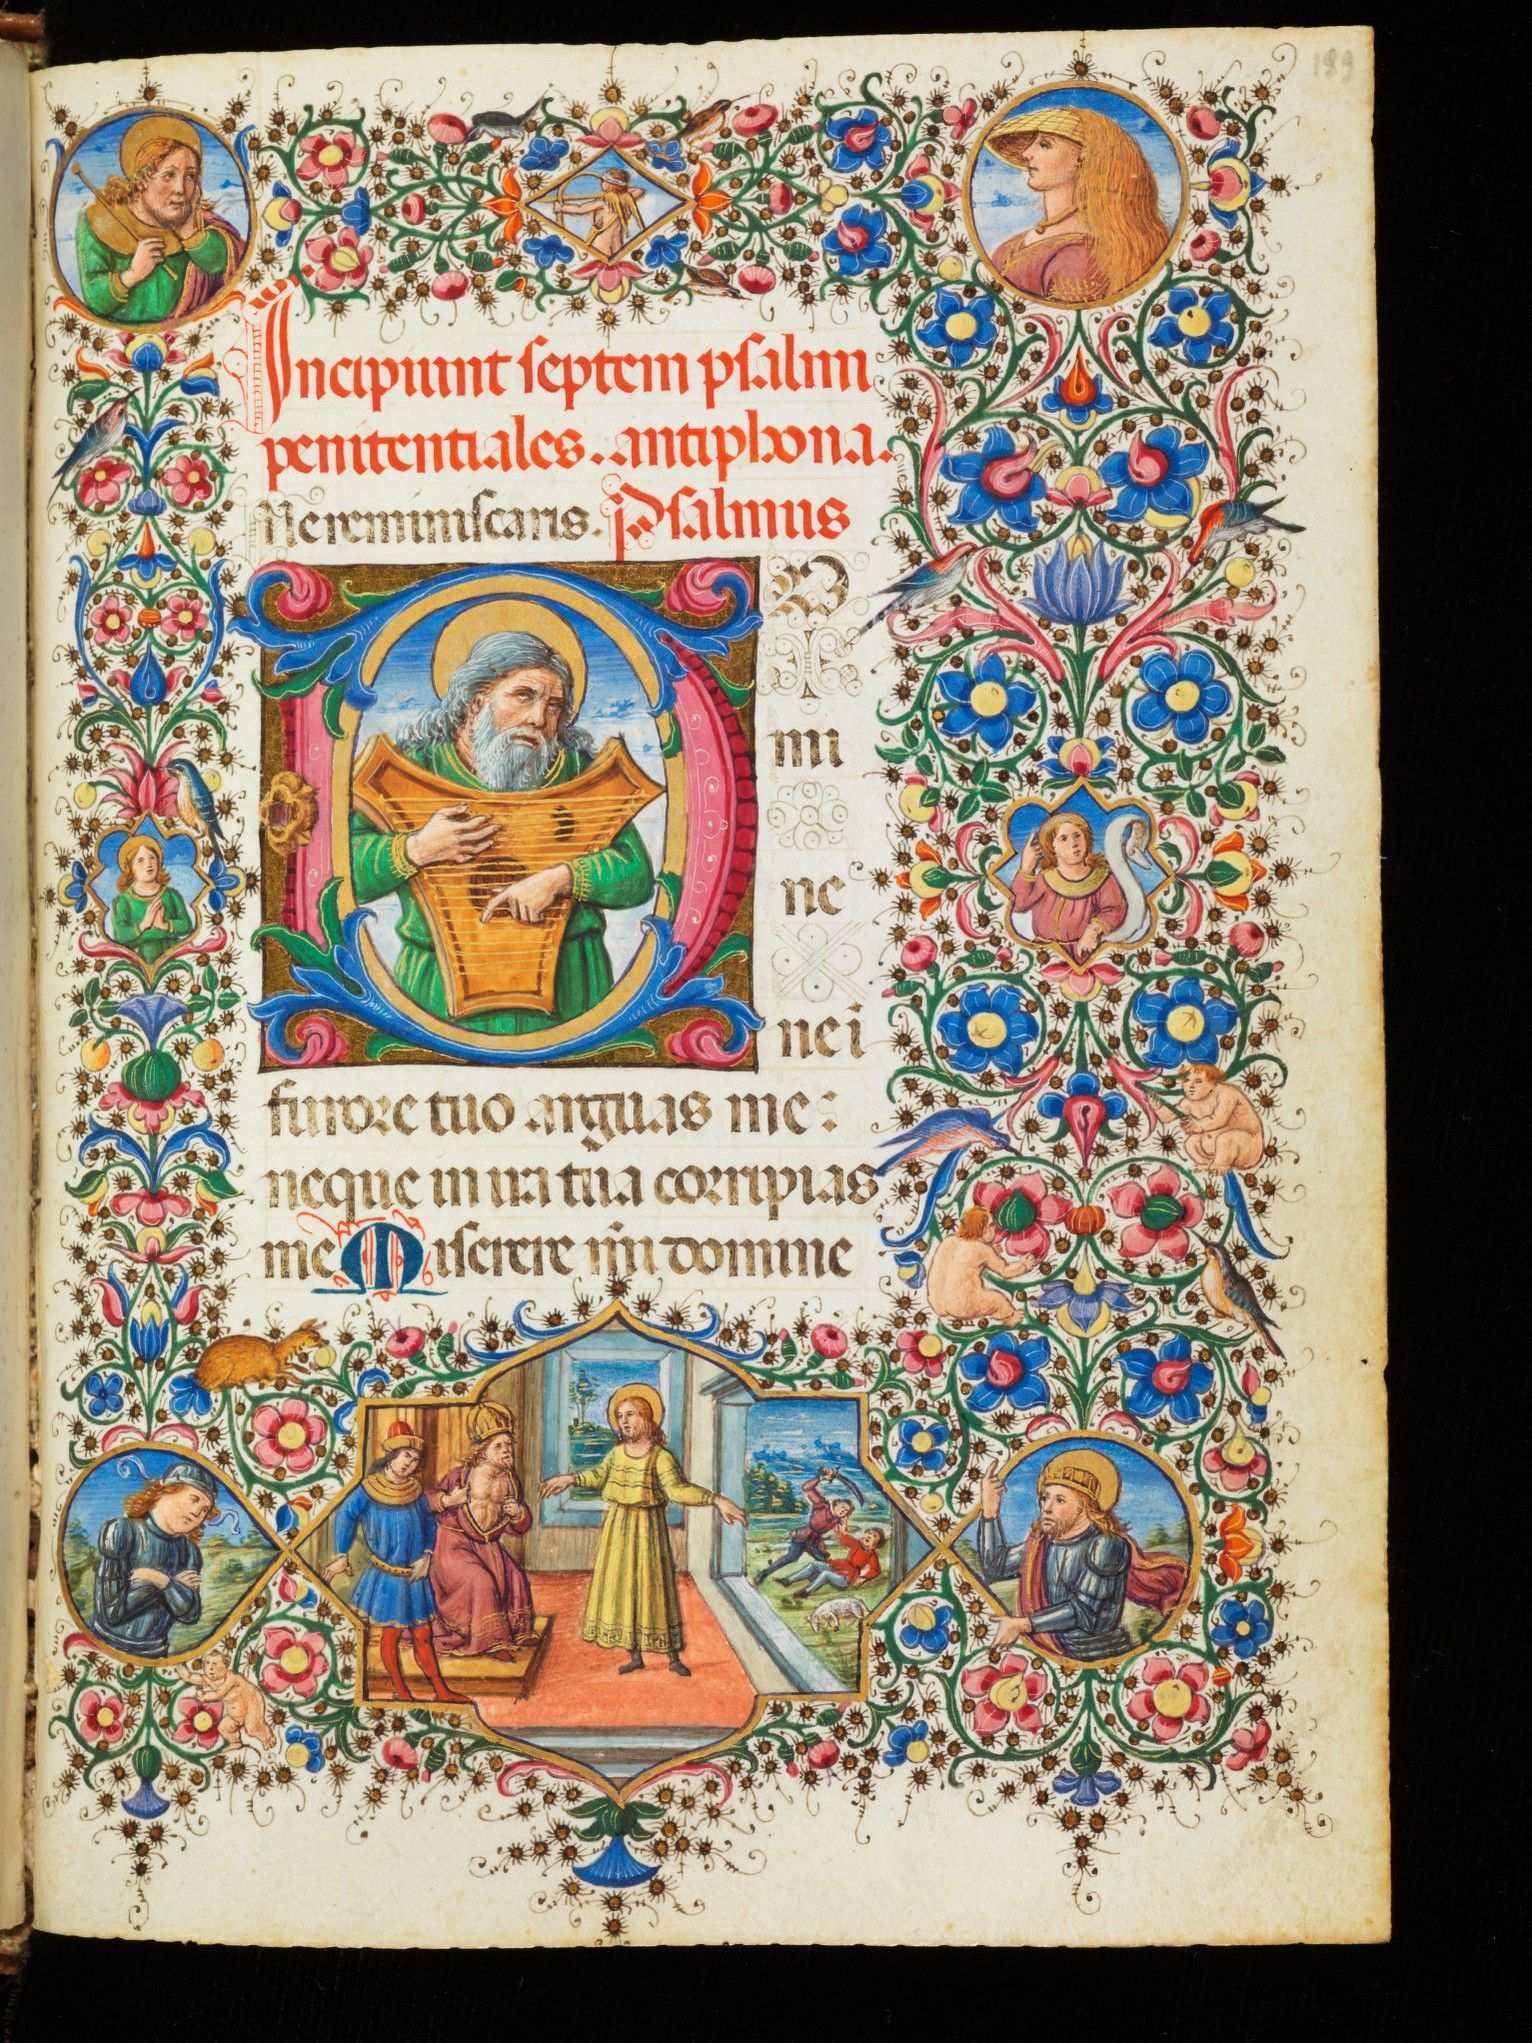 199
Incipiunt septem psalmi
penitentiales. antiphona.
Ne reminiscaris. Psalmus
DO
mi
ne
ne i
furore tuo arguas me:
neque in ira tua corripias
me Miserere mi domine